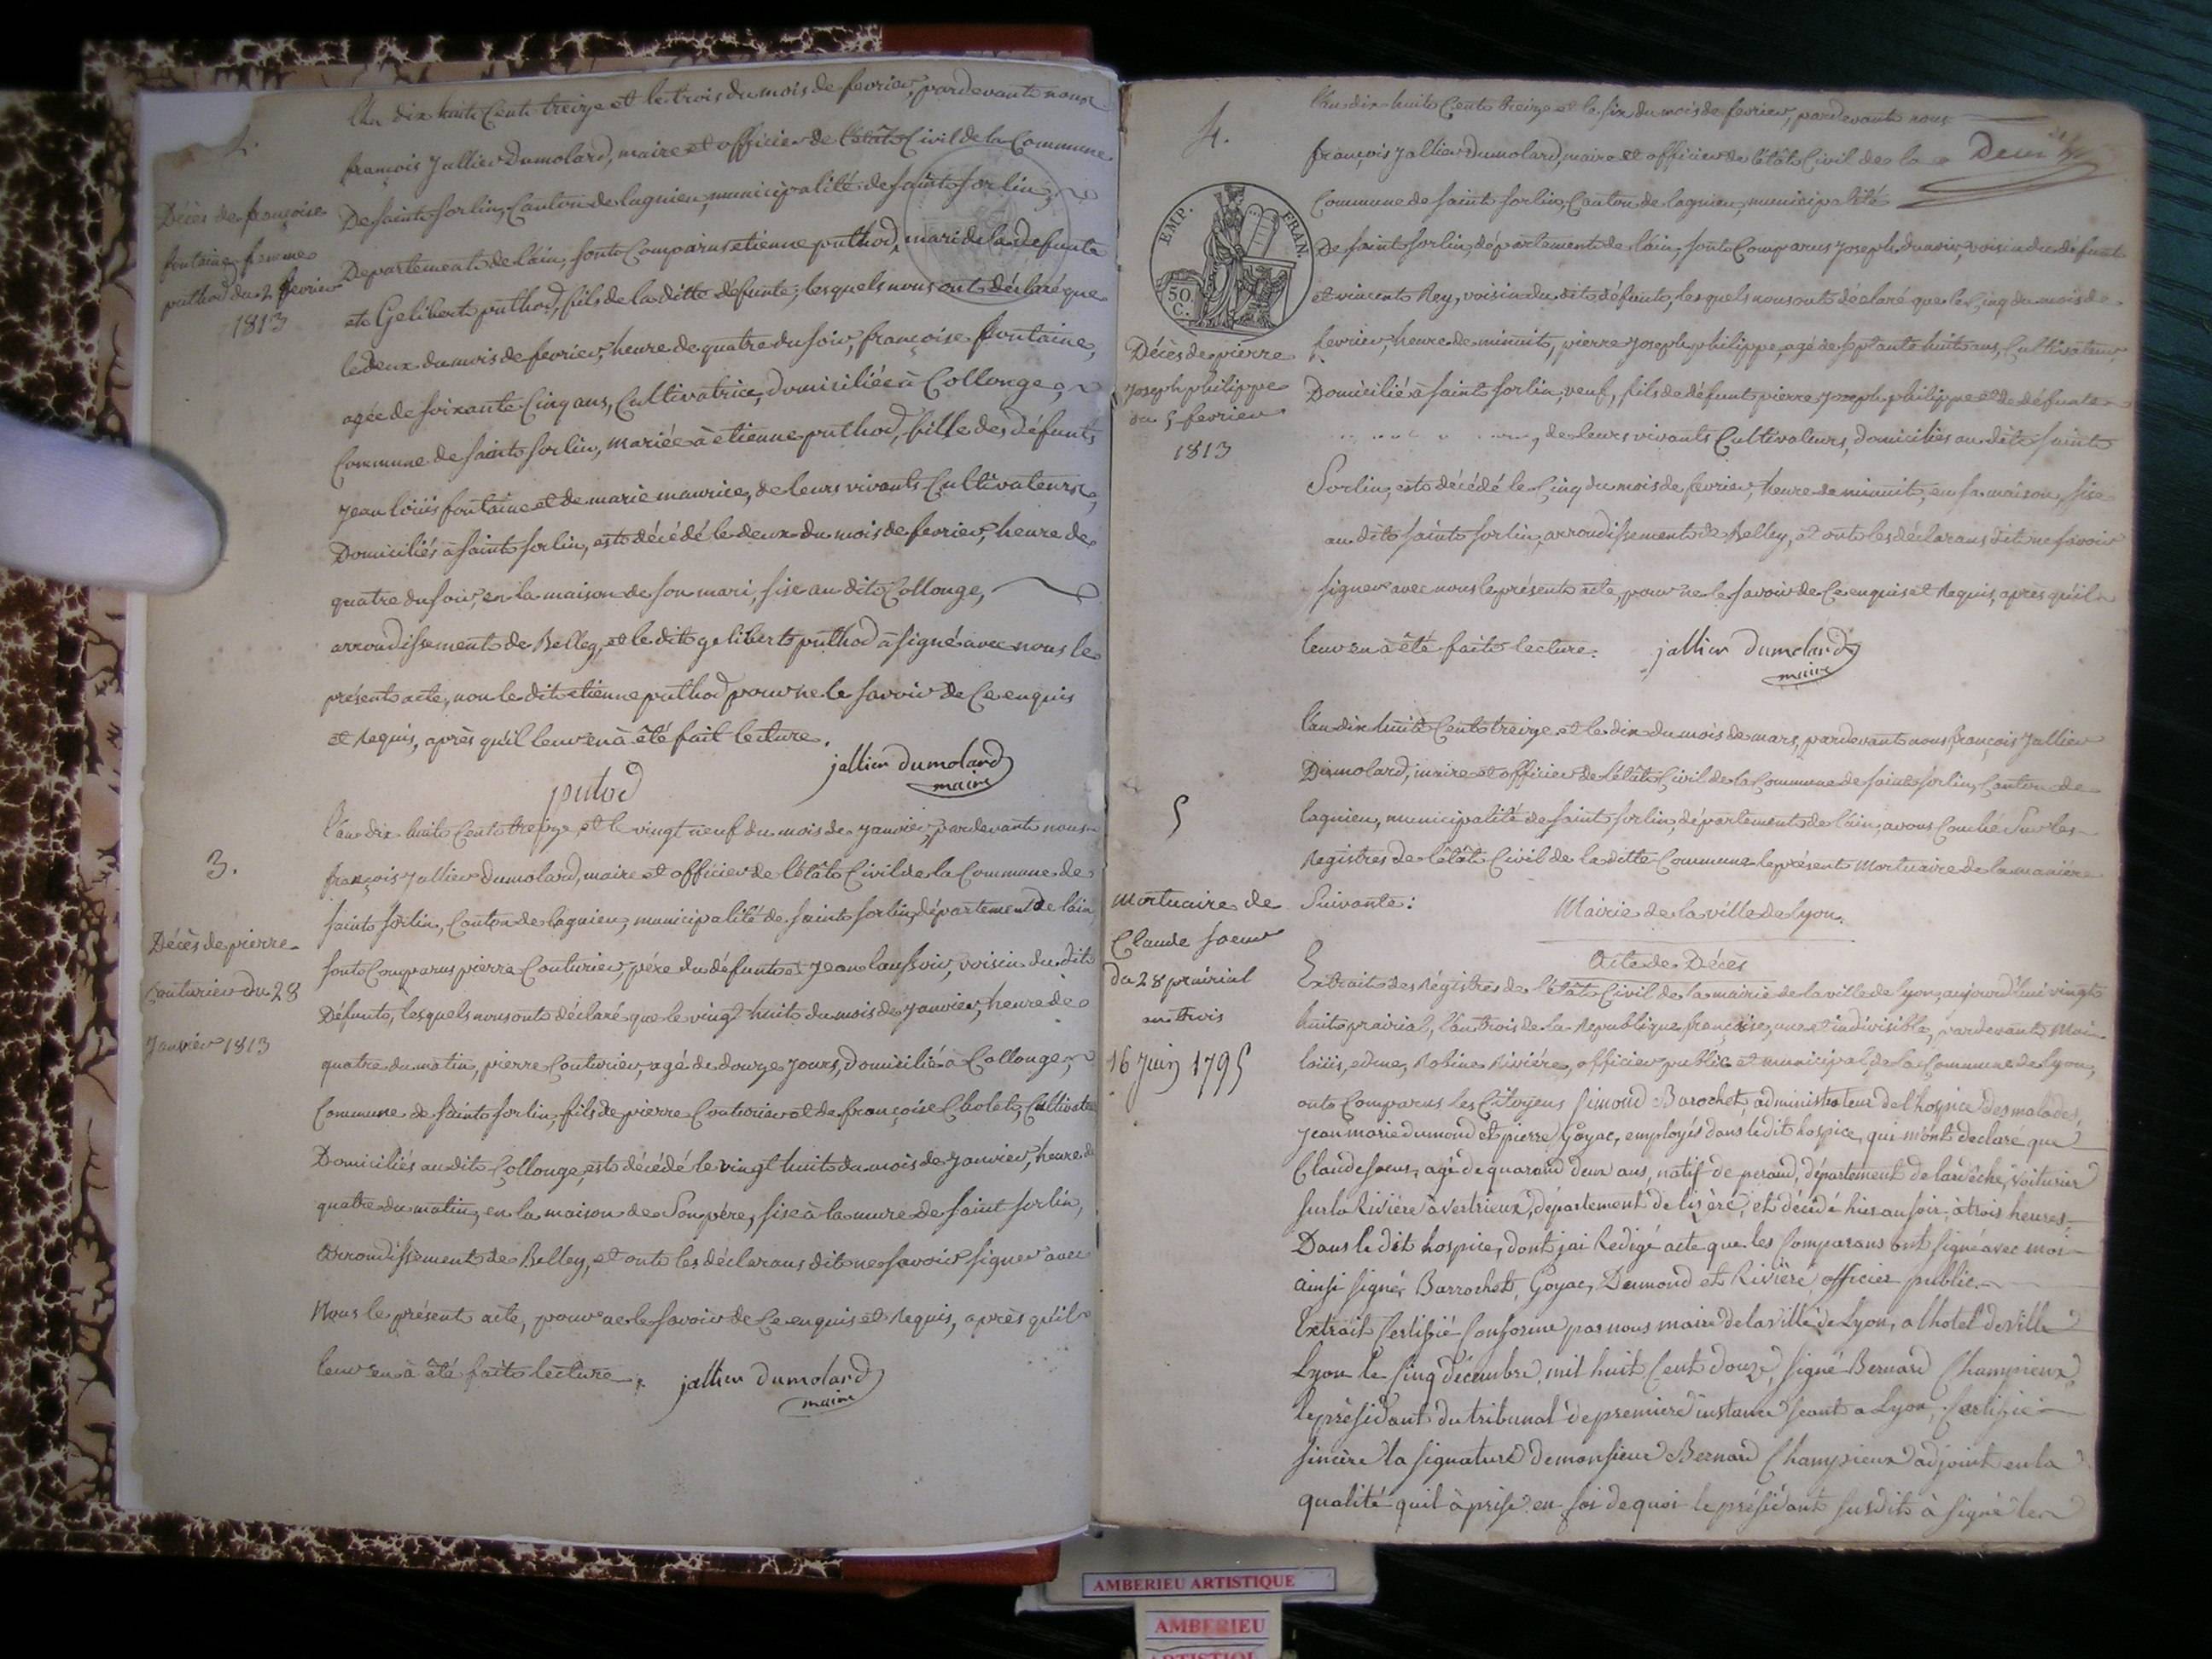 2.
L'an dix huit Cent treize et le trois du mois de fevrier, pardevant nous
françois Jallier Dumolard, maire et officier de l'êtât Civil de la Commune
De saint sorlin, Canton de lagnieu, municipalité de saint sorlin,
Departement de l'ain, sont Comparus etienne puthod, mari de la defunte
et Gelibert puthod, fils de la ditte défunte, lesquels nous ont déclaré que
le deux du mois de fevrier, heure de quatre du soir, françoise fontaine,
agée de soixante Cinq ans, Cultivatrice, domiciliée à Collonge,
Commune de saint sorlin, mariée à etienne puthod, fille des défunts
jean loüis fontaine et de marie maurice, de leurs vivants Cultivateurs,
Domiciliés à saint sorlin, est décédé le deux du mois de fevrier, heure de
quatre du soir, en la maison de son mari, sise au dit Collonge,
arrondissement de Belley, et le dit gelibert puthod à signé avec nous le
présent acte, non le dit etienne puthod pour ne le savoir de Ce enquis
et requis, après qu'il leur en à êté fait lecture.
jallier dumolard
maire
putod
Décès de françoise
fontaine femme
puthod du 2 fevrier
1813
3.
L'an dix huit Cent treize et le vingt neuf du mois de janvier, pardevant nous
françois Jallier Dumolard, maire et officier de l'êtât Civil de la Commune de
saint sorlin, Canton de lagnieu, municipalité de saint sorlin, département de l'ain
sont Comparus pierre Couturier, pére du défunt et jean voisin du dit
Défunt, lesquels nous ont déclaré que le vingt huit du mois de janvier, heure de
quatre du matin, pierre Couturier, agé de douze jours, domicilié à Collonge,
Commune de saint sorlin, fils de pierre Couturier et de françoise Cholet, Cultivateurs
Domiciliés au dit Collonge, est décédé le vingt huit du mois de janvier, heure de
quatre du matin, en la maison de son pére, sise à la mure de saint sorlin,
arrondissement de Belley, et ont les déclarans dit ne savoir signer avec
Nous le présent acte, pour ne le savoir de Ce enquis et requis, après qu'il
leur en à êté fait lecture.
jallier dumolard
maire
Décès de pierre
Couturier du 28
Janvier 1813
4.
L'an dix huit Cent treize et le six du mois de fevrier, pardevant nous
françois Jallier Dumolard, maire et officier de l'êtât Civil de la
Commune de saint sorlin, Canton de lagnieu, municipalité
De saint sorlin, département de l'ain, sont Comparus joseph voisin du défunt
et vincent Rey, voisin du dit défunt, lesquels nous ont déclaré que le Cinq du mois de
fevrier, heure de minuit, pierre joseph philippe, agé de septante huit ans, Cultivateur
Domicilié à saint sorlin, veuf, fils de défunt pierre joseph philippe et de défunte
, de leurs vivants Cultivateurs, domiciliés au dit saint
Sorlin, est décédé le Cinq du mois de fevrier, heure de minuit, en sa maison, sise
au dit saint sorlin, arrondissement de Belley, et ont les déclarans dit ne savoir
signer avec nous le présent acte, pour ne le savoir de Ce enquis et requis, après qu'il
leur en à êté fait lecture.
jallier dumolard
maire
EMP. FRAN.
50
C.
Décès de pierre
joseph philippe
du 5 fevrier
1813
5
L'an dix huit Cent treize et le dix du mois de mars, pardevant nous françois Jallier
Dumolard, maire et officier de l'êtât Civil de la Commune de saint sorlin, Canton de
lagnieu, municipalité de saint sorlin, département de l'ain, avons Couché sur les
registres de l'êtât Civil de la ditte Commune le présent Mortuaire de la maniére
Suivante:
Mairie de la ville de Lyon.
Acte de Décès
Extrait des régistres de l'êtât Civil de la mairie de la ville de Lyon, aujourd'hui vingt
huit prairial, l'an trois de la République française, une et indivisible, pardevant Moi
loüis, edme, Riviére, officier public et municipal, de la Commune de Lyon,
ont Comparus les Citoyens Simond Barochet, administrateur de l'hospice des malades,
Jean marie dumond et pierre Goyac, employés dans le dit hospice, qui m'ont declaré que
Claude soeur, agé de quarante deux ans, natif de peraud, département de lardêche, voiturier
sur la Riviére à Vertrieux, département de lisère, et décédé hier au soir, à trois heures,
Dans le dit hospice, dont j'ai Redigé acte que les Comparans ont signé avec moi
ainsi signé, Barrochet, Goyac, Dumond et Rivière, officier public.
Extrait Certifié Conforme par nous maire de la ville de Lyon, a l'hotel de Ville
Lyon le Cinq décembre, mil huit Cent douze, signé Bernard Champieux,
le président du tribunal de premiere instance séant a Lyon, Certifie
sincère la signature de monsieur Bernard Champieux adjoint en la
qualité qu'il à prise en foi de quoi le président susdit à signé le
Mortuaire de
Claude soeur
du 28 prairial
an trois
16 Juin 1795
AMBERIEU ARTISTIQUE
AMBERIEU
ARTISTIQUE